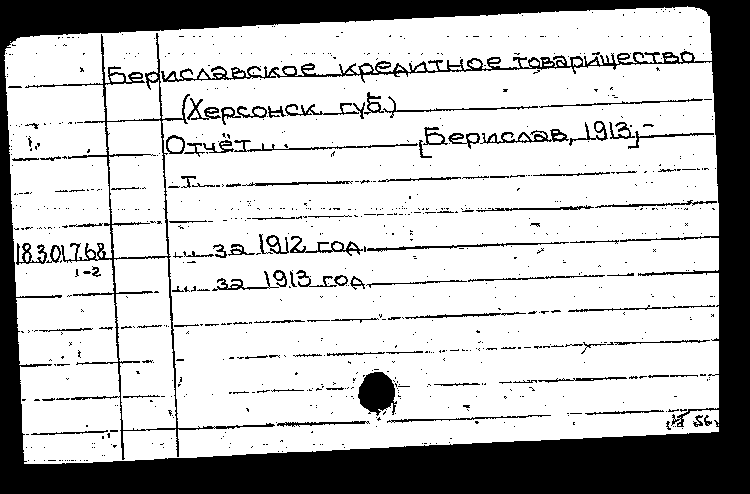 Бериславское кредитное товарищество
(Херсонск. губ.)
Отчёт ... [Берислав, 1913],-
т.
18.301.7.68
1-2
... за 1912 год.
... за 1913 год.
56